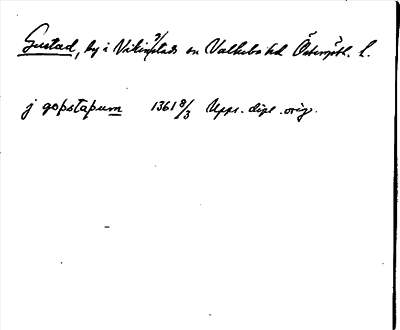 Gustad, by i Vikingstads sn Valkebo hd Östergötl. l.
j gopstapum 1361 8/3 Upps. dipl. orig.